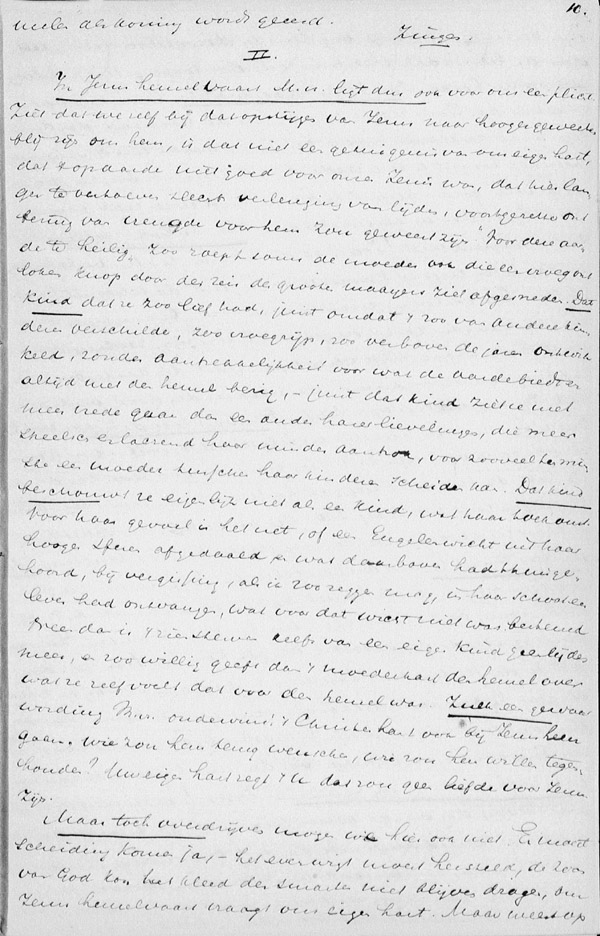 10.
meer als koning wordt geëerd. Zingen.
II.
In Jezus hemelvaart M.H. ligt dus ook voor ons een plicht
Ziet dat we zelf bij dat opstijgen van Jezus naar hooger gewest
blij zijn om hem, is dat niet een getuigenis van ons eigen hart,
dat 't op aarde niet goed voor onze Jezus was, dat hier lan
ger te verhoeven slechts verlenging van lijden, voortgezette ont
van vreugde voor hem zou geweest zijn. "Voor deze aar
de te heilig" Zoo roept soms de moeder ook die een vroeg ont
loken knop door de zeis des grooten maayers ziet afgesneden. Dat
kind dat ze zoo lief had, juist omdat 't zoo van andere kin
deren verschilde, zoo vroegrijp, zoo verboven de jaren ontwik
keld, zonder aantrekkelijkheid voor wat de aarde biedt en
altijd met den hemel bezig, - juist dat kind ziet ze met
meer vrede gaan dan een ander harer lievelingen, die meer
speelsch en lachend haar minder aantrok, voor zooveel ten min
ste een moeder tusschen haar kinderen scheiden kan. Dat kind
beschouwt ze eigenlijk niet als een kind, wat haar toekomt
Voor haar gevoel is het net, of een Engelenwicht uit haar
hooger sferen afgedaald en wat daarboven had thuis ge
hoord, bij vergissing, als ik zoo zeggen mag, in haar schoot een
leven had ontvangen, wat voor dat wicht niet was bestemd
Dan is 't zien sterven zelfs van een eigen kind geen lijden
meer, en zoo willig geeft dan 't moederhart den hemel over
wat ze zelf voelt dat voor den hemel was. Zulk een gewaar
wording M.H. ondervind 't Christenhart ook bij Jezus heen
gaan. Wie zou hem terug wenschen, wie zou hem willen tegen
houden? Uw eigen hart zegt 't U dat zou geen liefde voor Jezus
zijn.
Maar toch overdrijven mogen we hier ook niet. Er moet
scheiding komen ja, - het evenwigt moest hersteld, de zoon
van God kon het kleed der smarten niet blijven dragen, om
Jezus hemelvaart vraagt ons eigen hart. Maar weest op